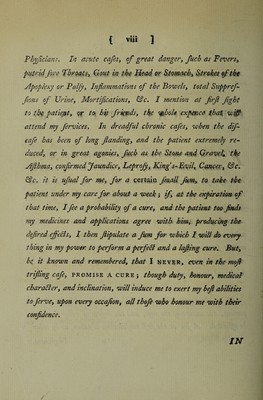 { viii ]
Phyſicians. In acute caſes, of great danger, ſuch as Fevers,
putrid ſore Throats, Gout in the Head or Stomach, Strokes of the
Apoplexy or Palſy, Inflammations of the Bowels, total Suppreſ-
ſions of Urine, Mortifications, &c. I mention at firſt ſight
to the patient, or to his friends, the whole expence that will
attend my ſervices. In dreadful chronic caſes, when the diſ-
eaſe has been of long ſtanding, and the patient extremely re-
duced, or in great agonies, ſuch as the Stone and Gravel, the
Aſthma, confirmed Jaundice, Leproſy, King's-Evil, Cancer, &c.
&c. it is uſual for me, for a certain ſmall ſum, to take the
patient under my care for about a week; if, at the expiration of
that time, I ſee a probability of a cure, and the patient too finds
my medicines and applications agree with him, producing the
deſired effects, I then ſtipulate a ſum for which I will do every
thing in my power to perform a perfect and a laſting cure. But,
be it known and remembered, that I NEVER, even in the moſt
trifling caſe, PROMISE A CURE; though duty, honour, medical
character, and inclination, will induce me to exert my beſt abilities
to ſerve, upon every occaſion, all thoſe who honour me with their
confidence.
IN